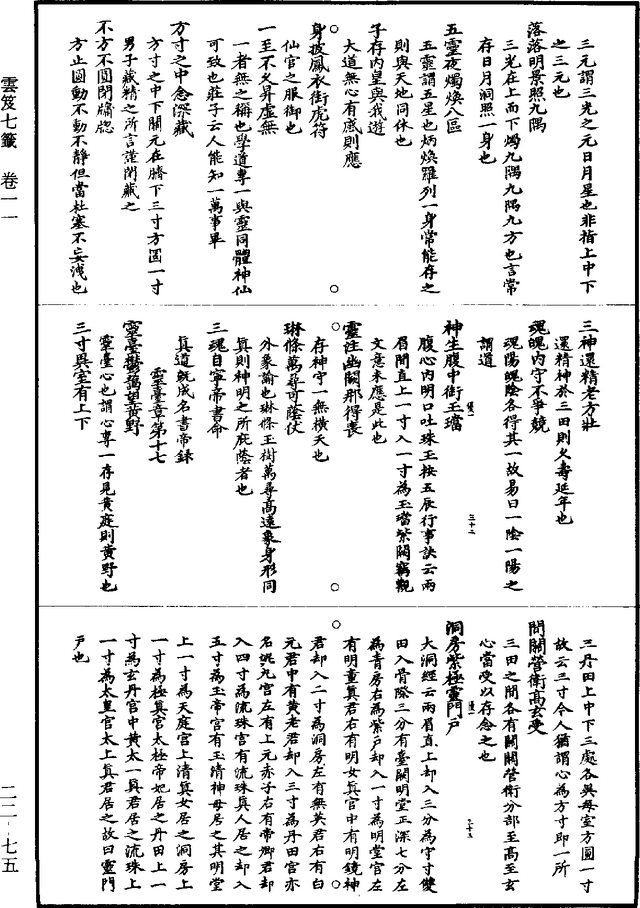 雲笈七籤　卷一一
三元謂三光之元日月星也非指上中下
之三元也
落落明景照九隅
三光在上而下燭九隅九隅九方也言常
存日月洞照一身也
五靈夜燭煥八區
五靈謂五星也炳煥羅列一身常能存之
則與天地同休也
子存內皇與我遊
大道無心有感則應
身披鳳衣銜虎符
仙官之服御也
一至不久昇虛無
一者無之稱也學道專一與靈同體神仙
可致也莊子云人能知一萬事畢
方寸之中念深藏
方寸之中下關元在臍下三寸方圓一寸
男子藏精之所言謹閉藏之
不方不圓閉牖牕
方止圓動不動不靜但當杜塞不妄洩也
三神還精老方壯
還精神於三田則久壽延年也
魂魄內守不爭競
魂陽魄陰各得其一故易曰一陰一陽之
謂道
神生腹中銜玉璫
腹心內明口吐珠玉按五辰行事訣云兩
眉間直上一寸入一寸為玉璫紫闕竊觀
文意未應是此也
靈注幽闕那得喪
存神守一無橫夭也
琳條萬尋可蔭仗
外象諭也琳條玉樹萬尋高遠象身形同
真則神明之所庇蔭者也
三魂自寧帝書命
真道既成名書帝錄
靈臺章第十七
靈臺鬱藹望黃野
靈臺心也謂心專一存見黃庭則黃野也
三寸異室有上下
三丹田上中下三處各異每室方圓一寸
故云三寸今人猶謂心為方寸即一所
間關營衛高玄受
三田之間各有關關營衛分部至高至玄
心當受以存念之也
洞房紫極靈門戶
大洞經云兩眉直上却入三分為守寸雙
田入骨際三分有臺闕明堂正深七分左
為青房右為紫戶却入一寸為明堂宮左
有明童真君右有明女真官中有明鏡神
君却入二寸為洞房左有無英君右有白
元君中有黃老君却入三寸為丹田宮亦
名泥丸宮左有上元赤子右有帝卿君却
入四寸為流珠宮有流珠真人居之却入
五寸為玉帝宮有玉清神母居之其明堂
上一寸為天庭宮上清真女居之洞房上
一寸為極真宮太極帝妃居之丹田上一
寸為玄丹宮中黃太一真君居之流珠上
一寸為太皇宮太上真君居之故曰靈門
戶也
二二-七五